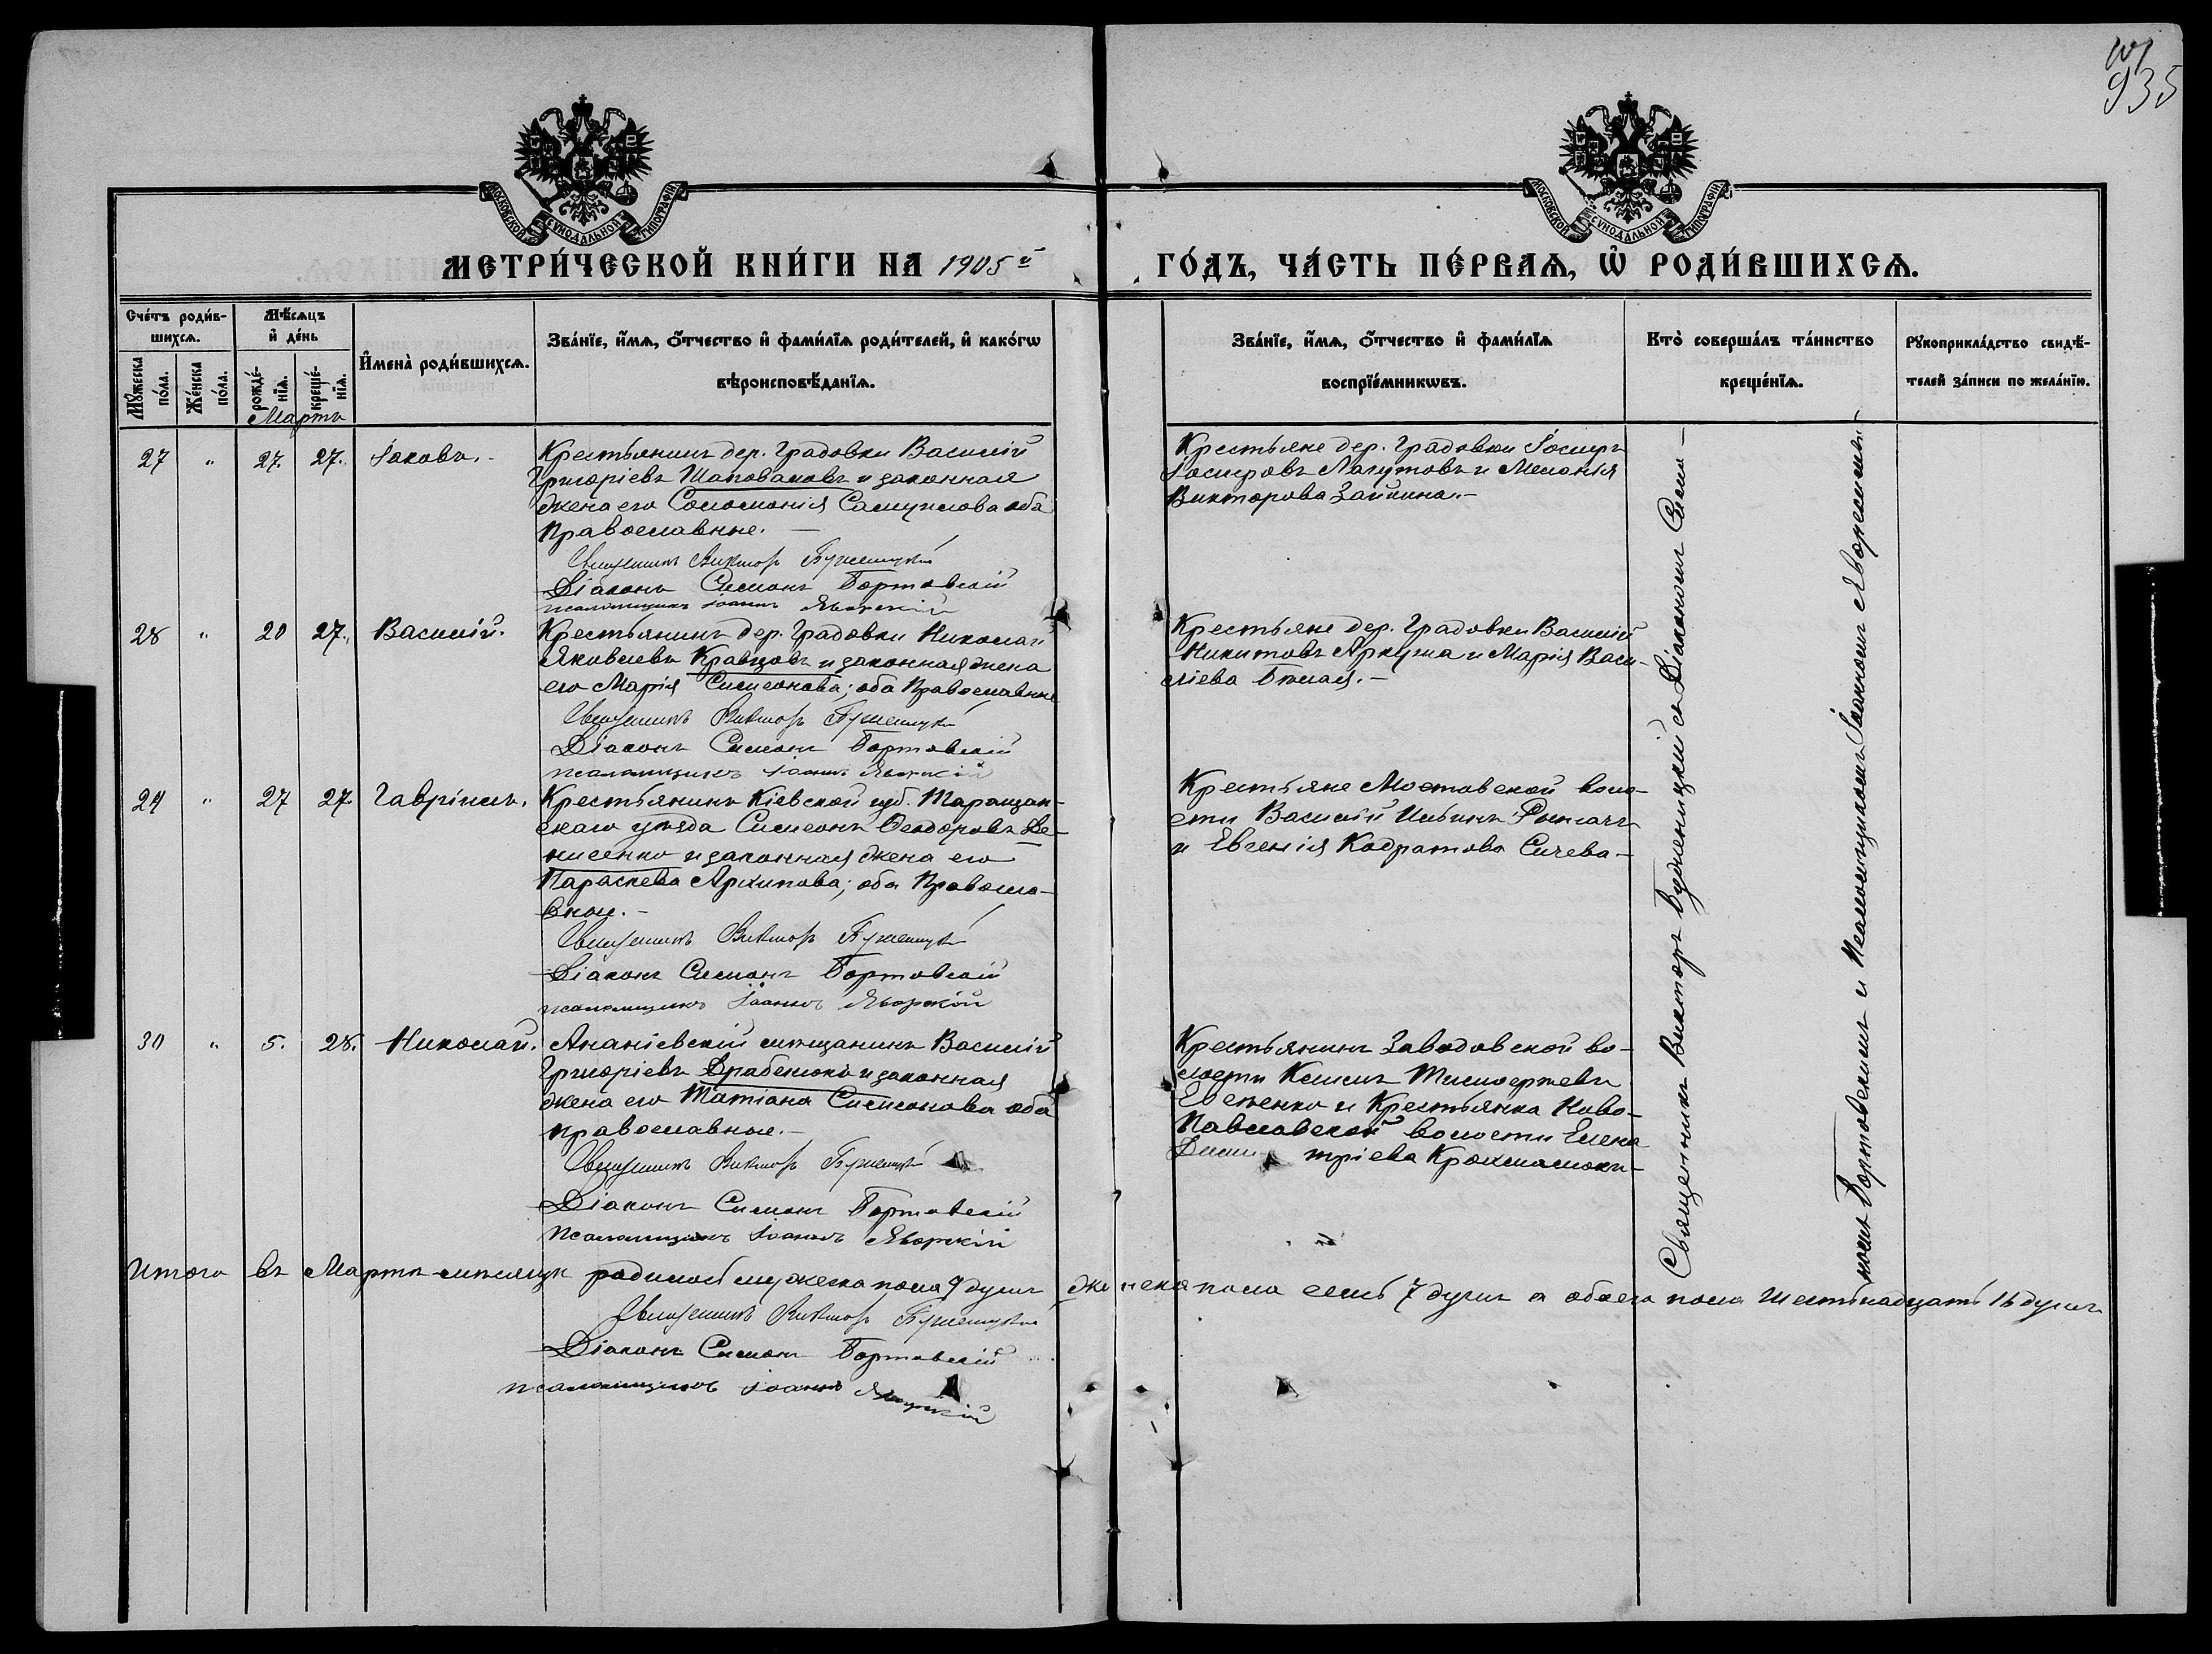 935
МОСКОВСКОЙ СѴНОДАЛЬНОЙ ТИПОГРАФІИ
МОСКОВСКОЙ СѴНОДАЛЬНОЙ ТИПОГРАФІИ
МЕТРИ́ЧЕСКОЙ КНИ́ГИ НА 1905й ГО́ДЪ, ЧА́СТЬ ПЕ́РВАѦ, Ѡ РОДИ́ВШИХСѦ.
Сче́тъ роди́в-
шихсѧ.
Мꙋ́жеска по́ла.
Же́нска по́ла.
Мѣ́сѧцъ
и҆ де́нь
рожде́-нїѧ.
креще́-нїѧ.
И҆мена̀ роди́вшихсѧ.
Зва́нїе, и҆́мѧ, ѻ҆́тчество и҆ фами́лїѧ роди́телей, и҆ како́гѡ
вѣроисповѣ́данїѧ.
Зва́нїе, и҆́мѧ, ѻ҆́тчество и҆ фами́лїѧ
воспрїе́мникѡвъ.
Кто̀ соверша́лъ та́инство
креще́нїѧ.
Рꙋкоприкла́дство свидѣ́-
телей за́писи по жела́нїю.
Мартъ
27 " 27. 27. Іаковъ.-
Крестьянинъ дер. Градовки Василій
Григоріевъ Шаповаловъ и законная
жена его Соломонія Самуилова оба
Православные.-
Священникъ Викторъ Будженицкій
Діаконъ Симеонъ Бортовскій
псаломщикъ Іоаннъ Яворскій
Крестьяне дер. Градовки Іосифъ
Іосифовъ Лагутовъ и Меланія
Викторова Заикина.-
28 " 20 27. Василій.
Крестьянинъ дер. Градовки Николай
Яковлевъ Кравцовъ и законная жена
его Марія Симеонова; оба Православные
Священникъ Викторъ Будженицкій
Діаконъ Симеонъ Бортовскій
псаломщикъ Іоаннъ Яворскій
Крестьяне дер. Градовки Василій
Никитовъ Аркуша и Марія Васи-
ліева Бѣлая.-
29 " 27 27. Гавріилъ.
Крестьянинъ Кіевской губ. Таращан-
скаго уѣзда Симеонъ Ѳеодоровъ Де-
нисенко и законная жена его
Параскева Архипова; оба Правосла-
вные.-
Священникъ Викторъ Будженицкій
Діаконъ Симеонъ Бортовскій
псаломщикъ Іоаннъ Яворскій
Крестьяне Мостовской воло-
сти Василій Ильинъ
и Евгенія Кодратова Сичева-
30 " 5. 28. Николай.
Ананіевскій мѣщанинъ Василій
Григоріевъ Драбенюкъ и законная
жена его Татіана Симеонова оба
православные.-
Священникъ Викторъ Будженицкій
Діаконъ Симеонъ Бортовскій
Псаломщикъ Іоаннъ Яворскій
Крестьянинъ Заводовской во-
лости Климъ
и Крестьянка Ново-
Павловской волости Елена
Димитріева
Священникъ Викторъ Будженицкій съ Діакономъ Симе-
ономъ Бортовскимъ и Псаломщикомъ Іоанномъ Яворскимъ.
Итого въ Мартѣ мѣсяцѣ родилось мужеска пола 9 душъ женска пола семь 7 душъ а обоего пола шестьнадцать 16 душъ
Священникъ Викторъ Будженицкій
Діаконъ Симеонъ Бортовскій
псаломщикъ Іоаннъ Яворскій